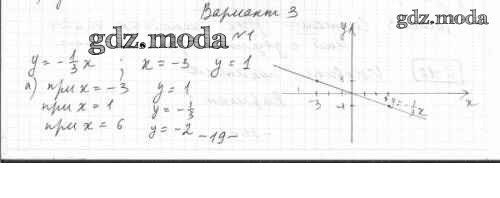 Вариант 3
gdz.moda
gdz.moda
№1
y = -1/3 x ; x = -3 y = 1
а) при x = -3 y = 1
при x = 1 y = -1/3
при x = 6 y = -2
-19-
y
-3
-1
x
y = -1/3 x